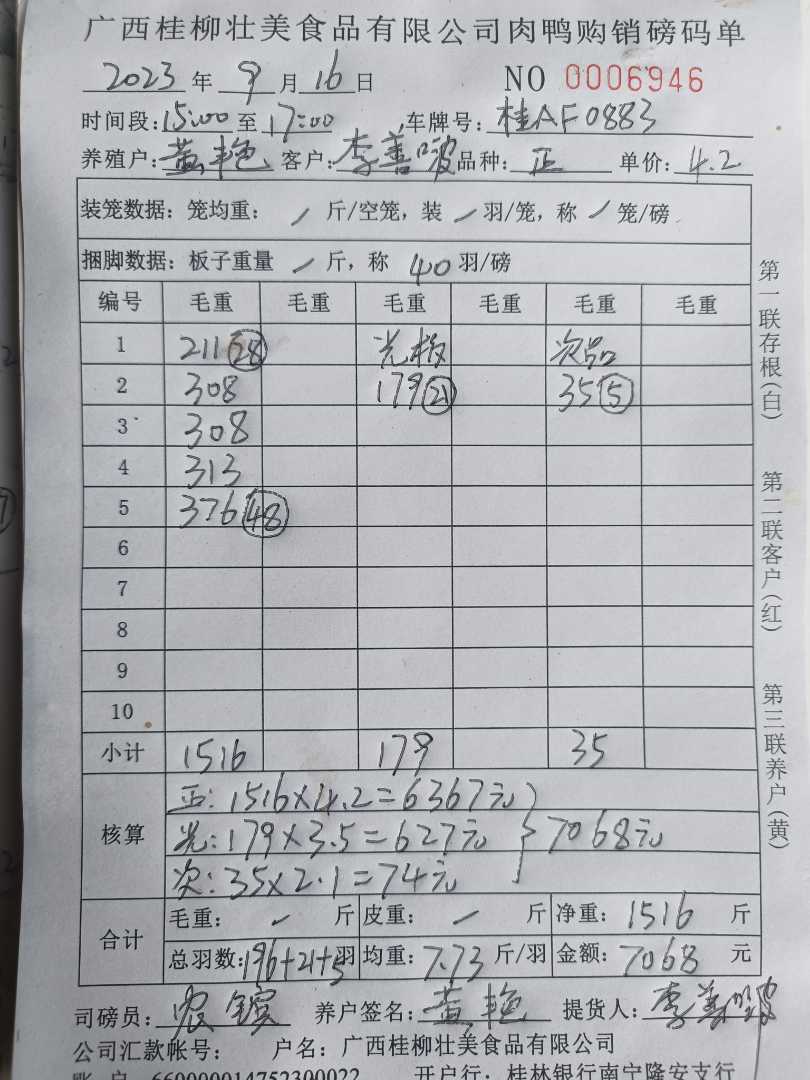 广西桂柳壮美食品有限公司肉鸭购销磅码单
2023 年 9 月 16 日 NO 0006946
时间段:15:00 至 17:00 车牌号:桂AF0883
养殖户:黄艳 客户:李善啵 品种:正 单价:4.2
装笼数据:笼均重: / 斤/空笼,装 / 羽/笼,称 / 笼/磅
捆脚数据:板子重量 / 斤,称 40 羽/磅
编号 毛重 毛重 毛重 毛重 毛重 毛重
1 211 28 光板 次品
2 308 179 21 35 5
3 308
4 313
5 376 48
6
7
8
9
10
小计 1516 179 35
核算
正:1516×4.2=6367元
光:179×3.5=627元 } 7068元
次:35×2.1=74元
合计
毛重: / 斤 皮重: / 斤 净重:1516 斤
总羽数:196+21+5羽 均重:7.73 斤/羽 金额:7068 元
司磅员: 养户签名:黄艳 提货人:李善啵
公司汇款帐号: 户名:广西桂柳壮美食品有限公司
账 户 660000014752300022 开户行:桂林银行南宁隆安支行
第一联存根(白)
第二联客户(红)
第三联养户(黄)